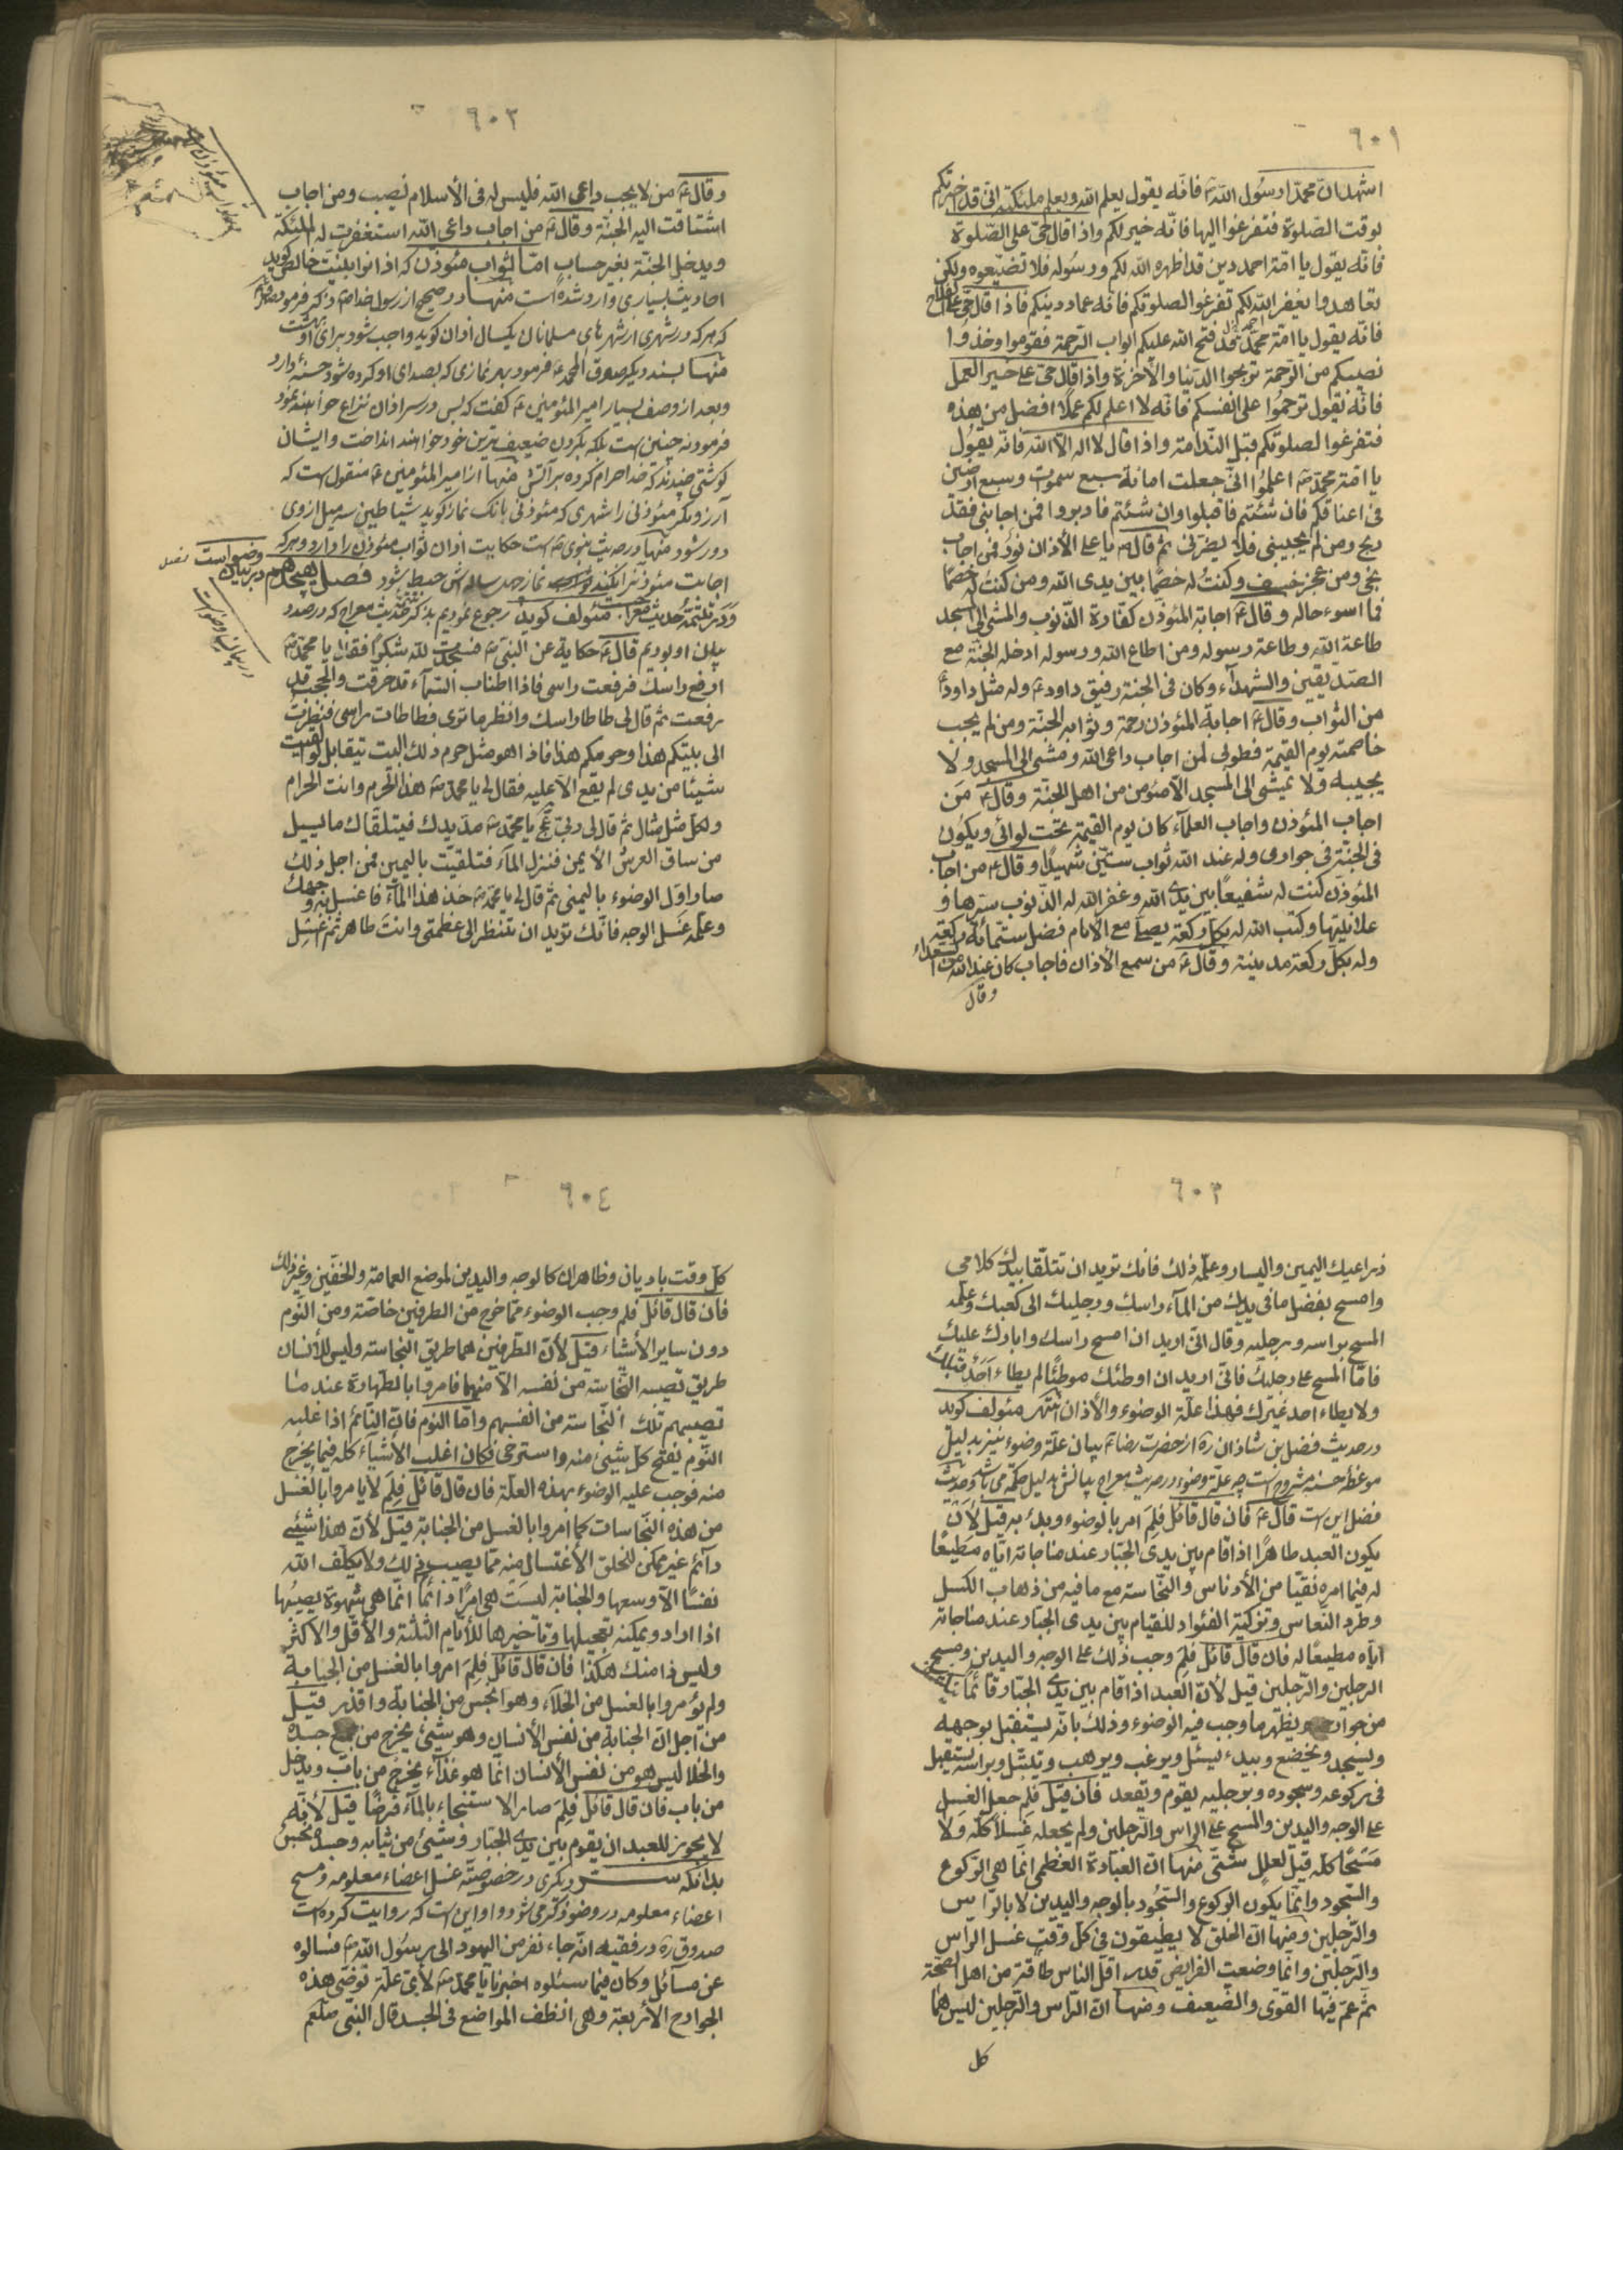 ٦٠١
اشهد انّ محمّدا رسُول الله ص فانّه يقول يعلم الله ويعلم ملئكته انّى قد اخبرتكم
لوقت الصّلوة فتفرغوا اليها فانّه خير لكم واذا قال حىّ على الصّلوة
فانّه يقول يا امّة احمد دين قد اظهره الله لكم ورسُوله فلا تضيّعوه ولكن
تعاهدوا يغفر الله لكم تفرغوا لصلوتكم فانّه عماد دينكم فاذا قال حىّ على الفلاح
فانّه يقول يا امّة محمّد قد فتح الله عليكم ابواب الرّحمة فقوموا وخذوا
نصيبكم من الرّحمة تربحوا الدّنيا والآخرة واذا قال حىّ على خير العمل
فانّه يقول ترحمُوا على انفسكم فانّه لا اعلم لكم عملًا افضل من هذه
فتفرغوا لصلوتكم قبل النّدامة واذا قال لا اله الّا الله فانّه يقُول
يا امّة محمّد ص اعلمُوا انّى جعلت امانة سبع سموت وسبع ارضين
فى اعناقكم فان شئتم فاقبلوا وان شئتم فادبروا فمن اجابنى فقد
ربح ومن لم يجيبنى فلا يضرّنى ثم قال ص يا على الأذان نورٌ فمن اجاب
نجى ومن عجز خسف وكنتُ له خصمًا بين يدى الله ومن كنت له خصمًا
فما اسوء حاله وقال ع اجابة المئوذن كفارة الذّنوب والمشى الى المسجد
طاعة الله وطاعة رسوله ومن اطاع الله ورسوله ادخله الجنّة مع
الصّديقين والشهدآء وكان فى الجنة رفيق داود ع وله مثل داود ع
من الثّواب وقال ع اجابة المئوذن رحمة وثوابه الجنّة ومن لم يجب
خاصمته يوم القيمة فطوبى لمن اجاب داعى الله ومشى الى المسجد ولا
يجيبه ولا يمشى الى المسجد الّا مئومن من اهل الجنّة وقال ع مَن
اجاب المئوذن واجاب العلمآء كان يوم القيمة تحت لوائى ويكُون
فى الجنّة فى جوارى وله عند الله ثواب ستّين شهيدًا وقال ع من اجاب
المئوذن كنت له شفيعًا بين يدى الله وغفر الله له الذّنوب سترها و
علانيتها وكتب الله له بكلّ ركعة يصلّ مع الأمام فضل ستمائة ركعة
وله بكلّ ركعة مدينة وقال ع من سمع الأذان فاجاب كان عند الله من السعداء
وقال
٦٠٢
وقال ع من لا يجب داعى الله فليس له فى الأسلام نصيب ومن اجاب
اشتاقت اليه الجنّة وقال ع من اجاب داعى الله استغفرت له الملئكة
ويدخل الجنّة بغير حساب امّا ثواب مئوذن كه اذانرا بنيّت خالص گويد
احاديث بسيارى وارد شده است منها در صحيح از رسول خدا ص كه فرمود
كه هركه در شهرى از شهرهاى مسلمانان يكسال اذان گويد واجب شود براى او بهشت
منها بسند ديگر صدوق از محمد ع فرمود بهر نمازى كه بصداى او كرده شود حسنهٔ دارد
وبعد از وصف بسيار امير المئومنين ع گفت كه پس در سر اذان نزاع خواهند نمود
فرمود نه چنين است بلكه بگردن ضعيف ترين خود خواهند انداخت وايشان
گوشتى چندند كه خدا حرام كرده بر آتش منها از امير المئومنين ع منقول است كه
دور شود منها در حديث نبوى ص است حكايت اذان ثواب مئوذن را دارد وهركه
اجابت مئوذنرا نكند نماز صد ساله اش حبط شود فصل هيجدهم در بيان وضو است
ودر تتمّهٔ حديث معراج است مئولف گويد رجوع نموديم بذكر تتمهٔ حديث معراج كه در صدد
بيان او بوديم قال ع حكاية عن النبى ص فسجدت لله شكرًا فقال يا محمد ص
ارفع راسك فرفعت راسى فاذا اطناب السّمآء قد خرقت والحجب قد
رفعت ثم قال لى طاطا راسك وانظر ما ترى فطاطات راسى فنظرت
الى بيتكم هذا وحرمكم هذا فاذا هو مثل حرم ذلك البيت تيقابل لو القيت
شيئًا من يدى لم يقع الّا عليه فقال لى يا محمّد ص هذا الحرم وانت الحرام
ولكلّ مثل مثال ثم قال لى ربّى عج يا محمّد ص مدّ يدك فيتلقّاك ما يسيل
من ساق العرش الأيمن فنزل المآء فتلقيت باليمين فمن اجل ذلك
صار اوّل الوضوء باليمنى ثم قال لى يا محمّد ص خذ هذا المآء فاغسل به وجهك
وعلّمه غَسل الوجه فانّك تريد ان تنظر الى عظمتى وانت طاهر ثم اغسل
٦٠٣
ذراعيك اليمين واليسار وعلّمه ذلك فانك تريد ان تتلقّا بيديك كلامى
وامسح بفضل ما فى يديك من المآء راسك ورجليك الى كعبك وعلّمه
المسح براسه ورجليه وقال انّى اريد ان امسح راسك وابارك عليك
فامّا المسح على رجليك فانّى اريد ان اوطئك موطئًا لم يطاء احَدٌ قبلك
ولا يطاء احد غيرك فهذا علّة الوضوء والأذان انتهى مئولف گويد
در حديث فضل بن شاذان ره از حضرت رضا ع بيان علّة وضوء نيز بدليل
موعظهٔ حسنه مشروح است چه علّة وضوء در حديث معراج بيانش بدليل حكمة مى باشد وحديث
فضل اين است قال ع فان قال قائل فلِمَ امر بالوضوء وبدئ به قيل لأن
يكون العبد طاهرًا اذا قام بين يدى الجبّار عند مناجاته ايّاه مطيعًا
له فيما امره نقيّا من الأدناس والنجّاسة مع ما فيه من ذهاب الكسل
وطرد النّعاس وتزكية الفئواد للقيام بين يدى الجبّار عند مناجاته
ايّاه مطيعًا له فان قال قائل فلِمَ وجب ذلك على الوجه واليدين ومسح
الرجلين والرّجلين قيل لأنّ العبد اذا قام بين يدى الجبّار قائمًا
من جوارحه ويظهر ما وجب فيه الوضوء وذلك بانّه يستقبل بوجهه
ويسجد ويخضع وبيده يسئل ويرغب ويرهب ويتبتّل وبراسه يستقبل
فى ركوعه وسجوده وبرجليه يقوم ويقعد فان قيل فلِمَ جعل الغسل
على الوجه واليدين والمسح على الراس والرّجلين ولم يجعله غسلًا كلّه وَلا
مَسْحًا كلّه قيل لعلل شتّى منها انّ العبادة العظمى انّما هى الرّكوع
والسّجود وانّما يكون الركوع والسّجُود بالوجه واليدين لا بالرّاس
والرّجلين ومنها انّ الخلق لا يطيقون فى كلّ وقت غسل الراس
والرّجلين وانّما وضعت الفرايض على قدر اقلّ الناس طاقة من اهل الصّحّة
ثم عمّ فيها القوى والضّعيف ومنها انّ الرّاس والرّجلين ليس هما
كل
٦٠٤
كلّ وقت باديان وظاهران كالوجه واليدين لموضع العمامة والخفّين وغير ذلك
فان قال قائل فلِم وجب الوضوء ممّا خرج من الطرفين خاصّة ومن النّوم
دون ساير الأشياء قيل لأنّ الطّرفين هما طريق النّجاسة وليس للأنسان
طريق تصيبه النّجاسة من نفسه الّا منهما فامروا بالطّهارة عند ما
تصيبهم تلك النّجاسة من انفسهم وامّا النوم فانّ النّائم اذا غلبه
النّوم يفتح كلّ شيئ منه واسترخى فكان اغلب الأشيآء كلّه فيما يخرج
منه فوجب عليه الوضوء بهذه العلّة فان قال قائل فلِمَ لا يامروا بالغسل
من هذه النّجاسات كما امروا بالغسل من الجنابة قيل لأنّ هذا شيئ
دآئم غير ممكن للخلق الأغتسال منه ممّا يصيب ذلك ولا يكلّف الله
نفسًا الّا وسعها والجنابة ليسَت هى امرًا دآئمًا انّما هى شهوة يصيبُها
اذا اراد ويمكنه تعجيلها وتاخيرها للأيّام الثلثة والأقلّ والأكثر
وليس ذا منك هكذا فان قال قائل فلِمَ امروا بالغسل من الجنابة
ولم يؤمروا بالغسل من الخلآء وهو انجس من الجنابة واقذر قيل
من اجل انّ الجنابة من نفس الأنسان وهو شيئ يخرج من جميع جسده
والخلا ليس هو من نفس الأنسان انّما هو غذآء يخرج من باب ويدخل
من باب فان قال قائل فلِمَ صار الاستنجاء بالمآء فرضًا قيل لأنّه
لا يجوز للعبد ان يقوم بين يدى الجبّار وشيئ من ثيابه وجسده نجس
بدانكه سرّ ديگرى در خصوصيّة غسل اعضاء معلومه ومسح
اعضاء معلومه در وضو ذكر مى شود واو اين است كه روايت كرده است
صدوق ره در فقيه انّه جاء نفر من اليهود الى رسُول الله ص فسالوه
عن مسآئل وكان فيما سئلوه اخبرنا يا محمّد ص لأىّ علّة توضّى هذه
الجوارح الأربعة وهى انظف المواضع فى الجسد قال النبّى صلعم